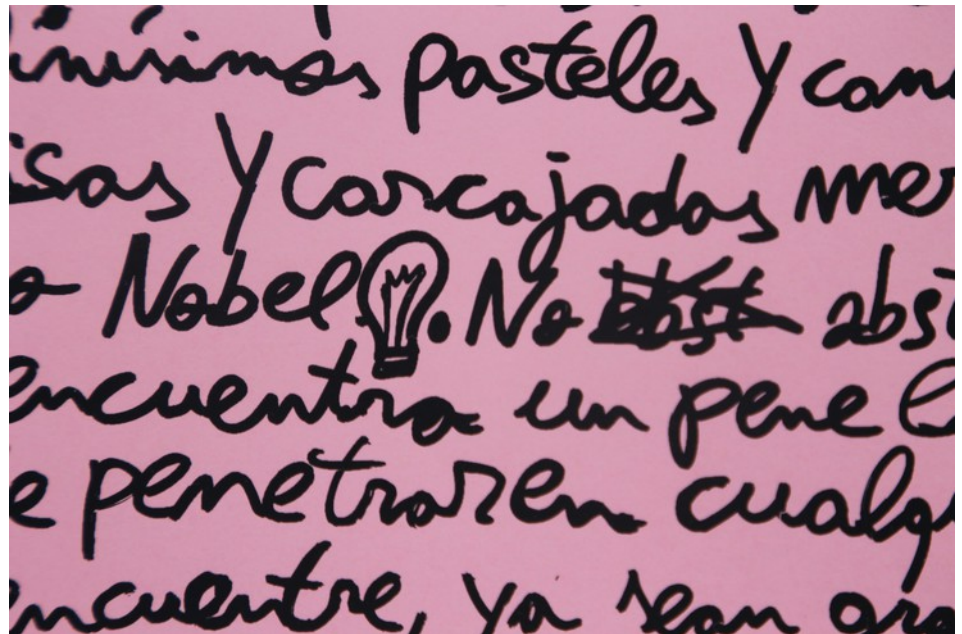 inísimos pasteles y con
isas y carcajadas mer
o Nobel. No abst
encuentra un pene e
e penetraren cualqu
encuentre, ya sean gra